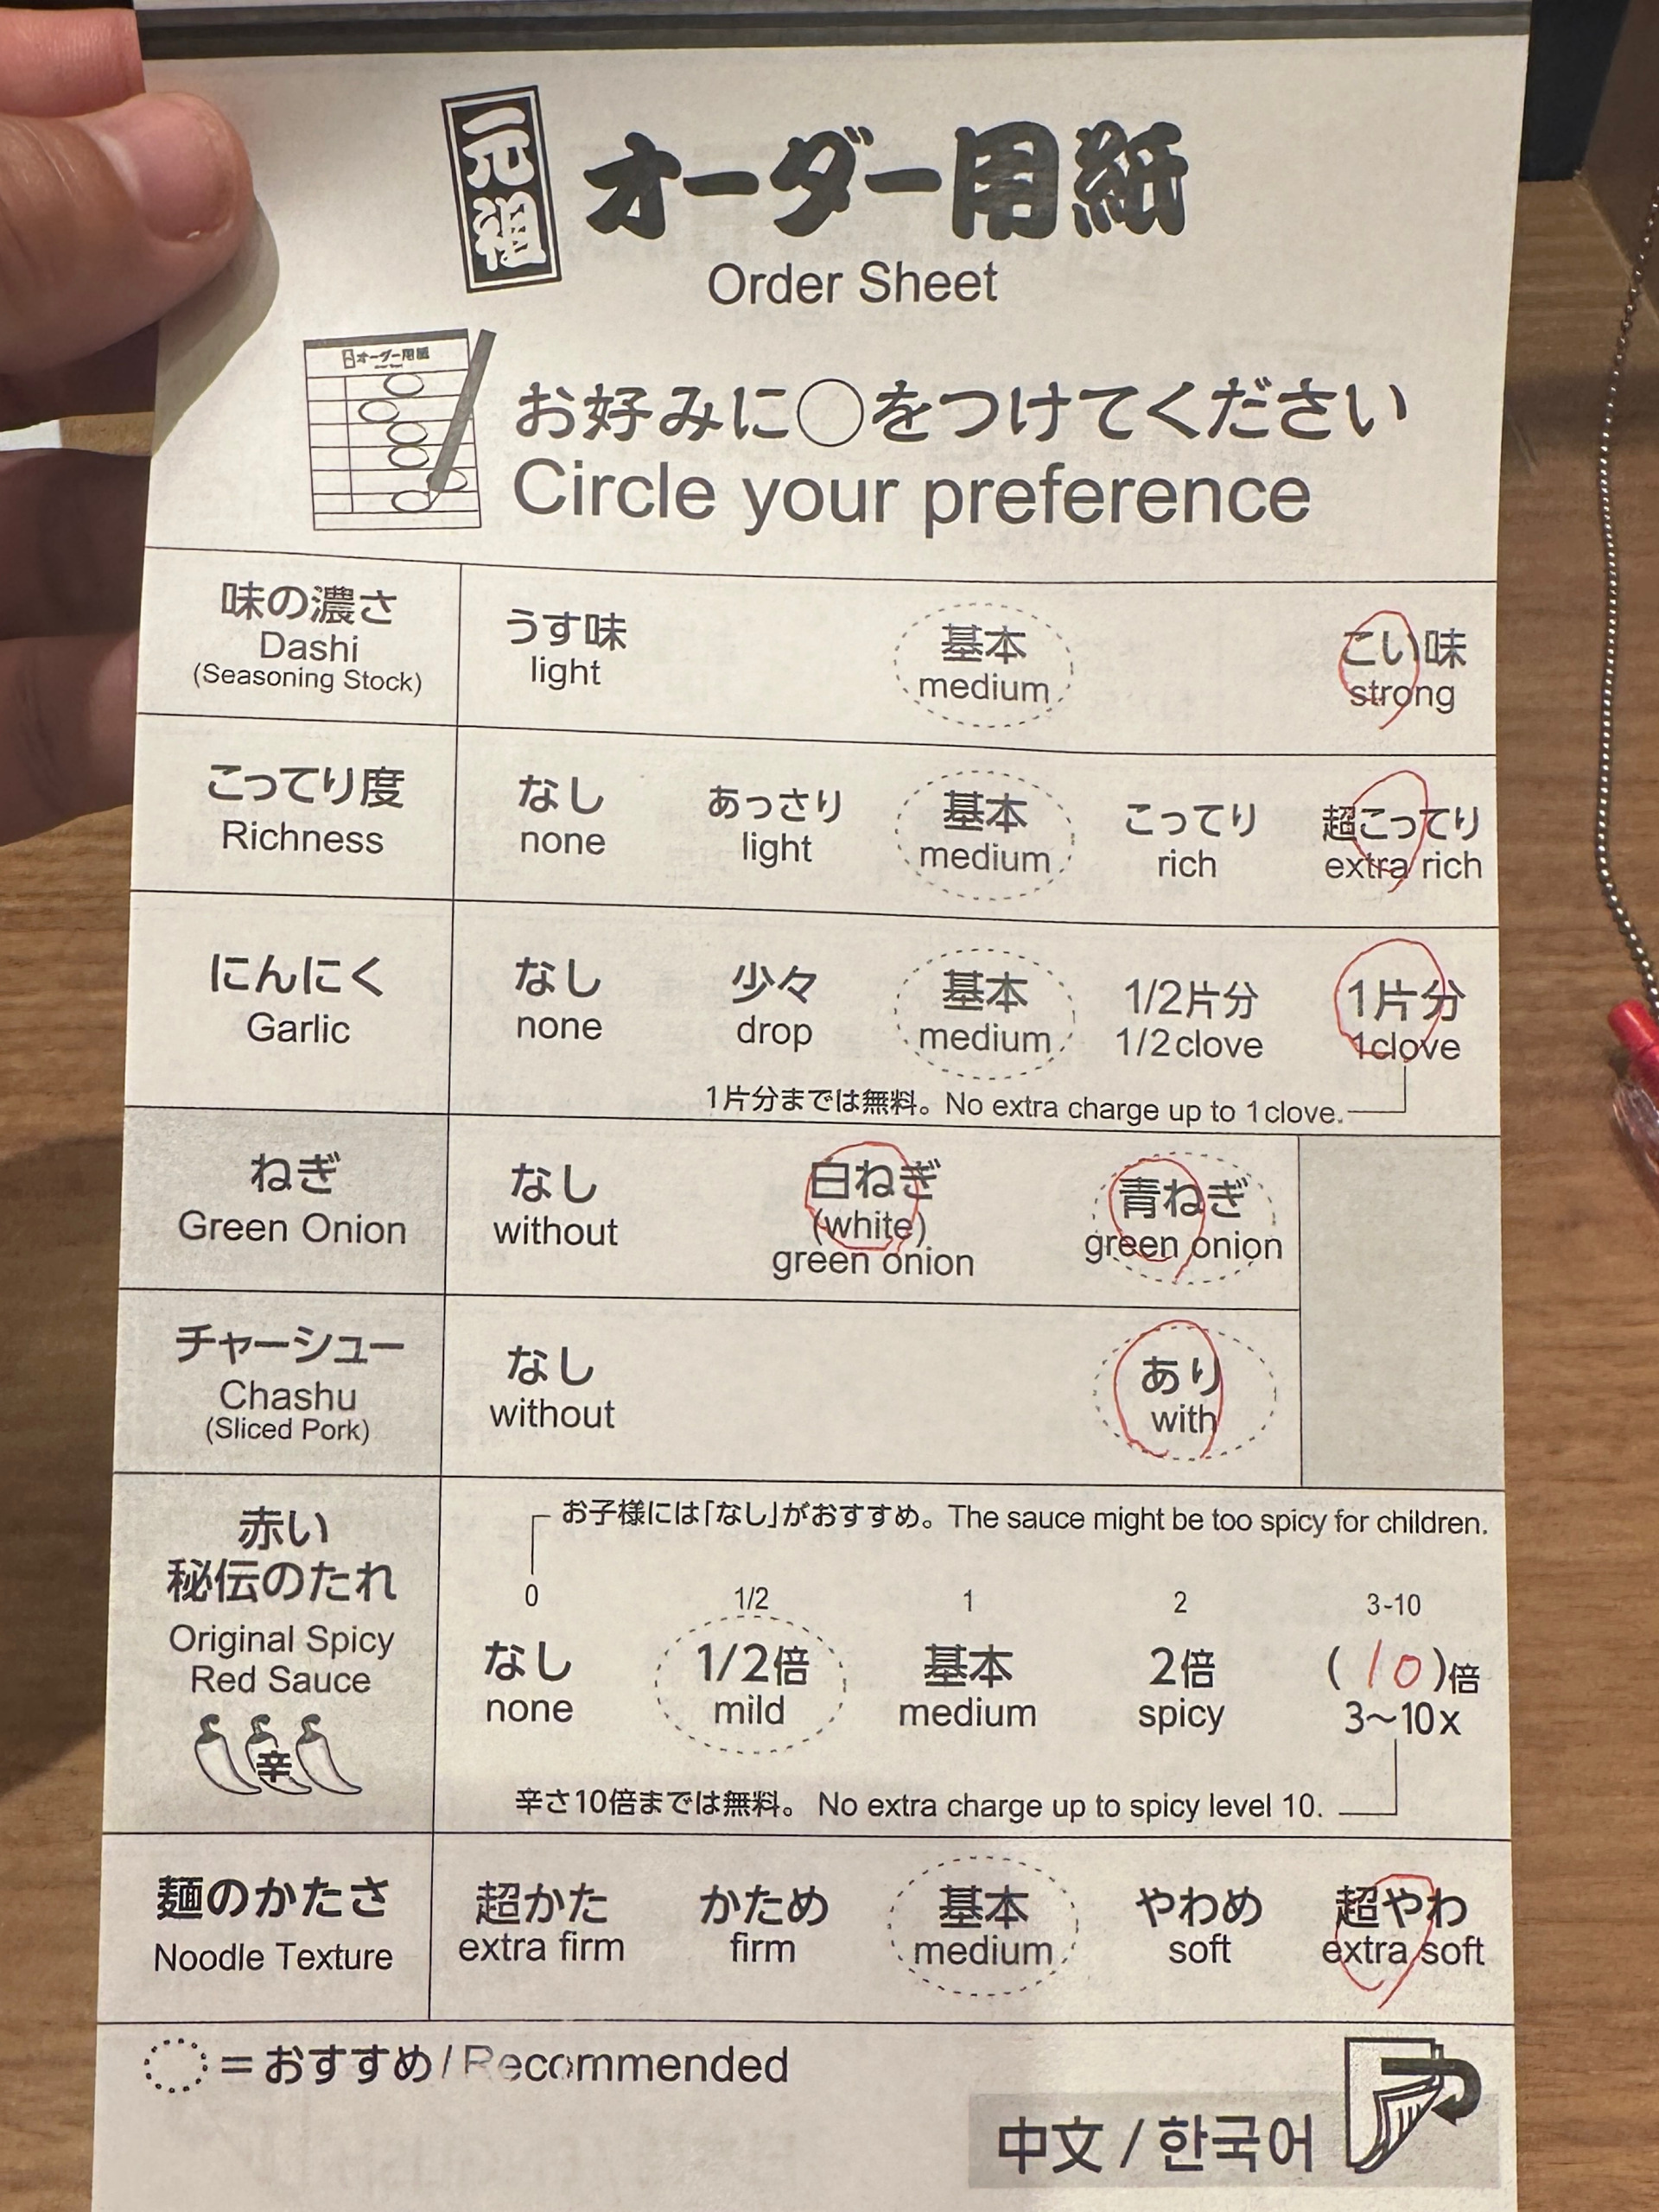 元祖
オーダー用紙
Order Sheet
オーダー用紙
お好みに◯をつけてください
Circle your preference
味の濃さ
Dashi
(Seasoning Stock)
うす味
light
基本
medium
こい味
strong
こってり度
Richness
なし
none
あっさり
light
基本
medium
こってり
rich
超こってり
extra rich
にんにく
Garlic
なし
none
少々
drop
基本
medium
1/2片分
1/2clove
1片分
1clove
1片分までは無料。No extra charge up to 1clove.
ねぎ
Green Onion
なし
without
白ねぎ
(white)
green onion
青ねぎ
green onion
チャーシュー
Chashu
(Sliced Pork)
なし
without
あり
with
赤い
秘伝のたれ
Original Spicy
Red Sauce
辛
お子様には「なし」がおすすめ。The sauce might be too spicy for children.
0
なし
none
1/2
1/2倍
mild
1
基本
medium
2
2倍
spicy
3-10
(10)倍
3〜10x
辛さ10倍までは無料。No extra charge up to spicy level 10.
麺のかたさ
Noodle Texture
超かた
extra firm
かため
firm
基本
medium
やわめ
soft
超やわ
extra soft
=おすすめ/Recommended
中文/한국어